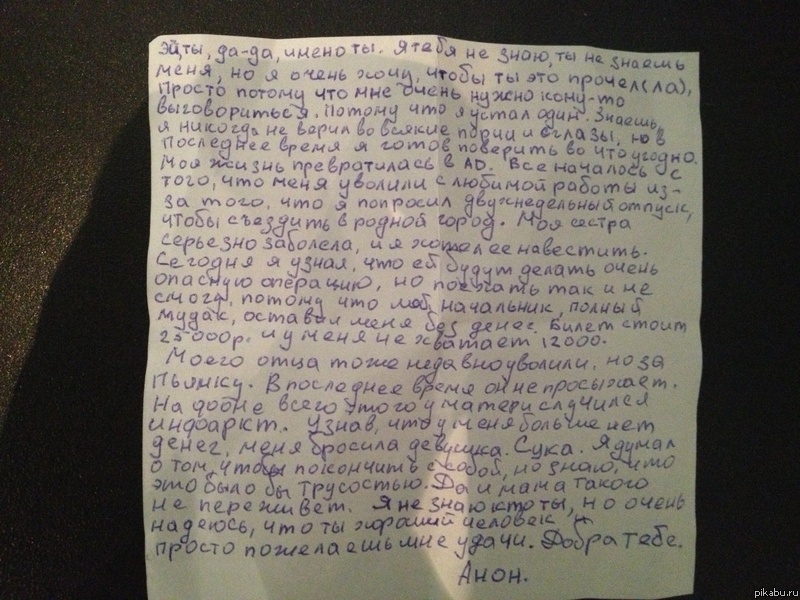 Эй, ты, да-да, имено ты. Я тебя не знаю, ты не знаешь
меня, но я очень хочу, чтобы ты это прочел(ла),
Просто потому что мне очень нужно кому-то
выговориться. Потому что я устал один. Знаешь,
я никогда не верил во всякие порчи и сглазы, но в
последнее время я готов поверить во что угодно.
Моя жизнь превратилась в АD. Все началось с
того, что меня уволили с любимой работы из-
за того, что я попросил двухнедельный отпуск,
чтобы съездить в родной город. Моя сестра
серьезно заболела, и я хотел ее навестить.
Сегодня я узнал, что ей будут делать очень
опасную операцию, но поехать так и не
смогу, потому что мой начальник, полный
мудак, оставил меня без денег. Билет стоит
25000р. и у меня не хватает 12000.
Моего отца тоже недавно уволили, но за
Пьянку. В последнее время он не просыхает.
На добне всего этого у матери случился
инфаркт. Узнав, что у меня больше нет
денег, меня бросила девушка. Сука. Я думал
о том, чтобы покончить с собой, но знаю, что
это было бы трусостью. Да и мама такого
не переживет. Я не знаю кто ты, но очень
надеюсь, что ты хороший человек и
просто пожелаешь мне удачи. Добра тебе.
Анон.
pikabu.ru